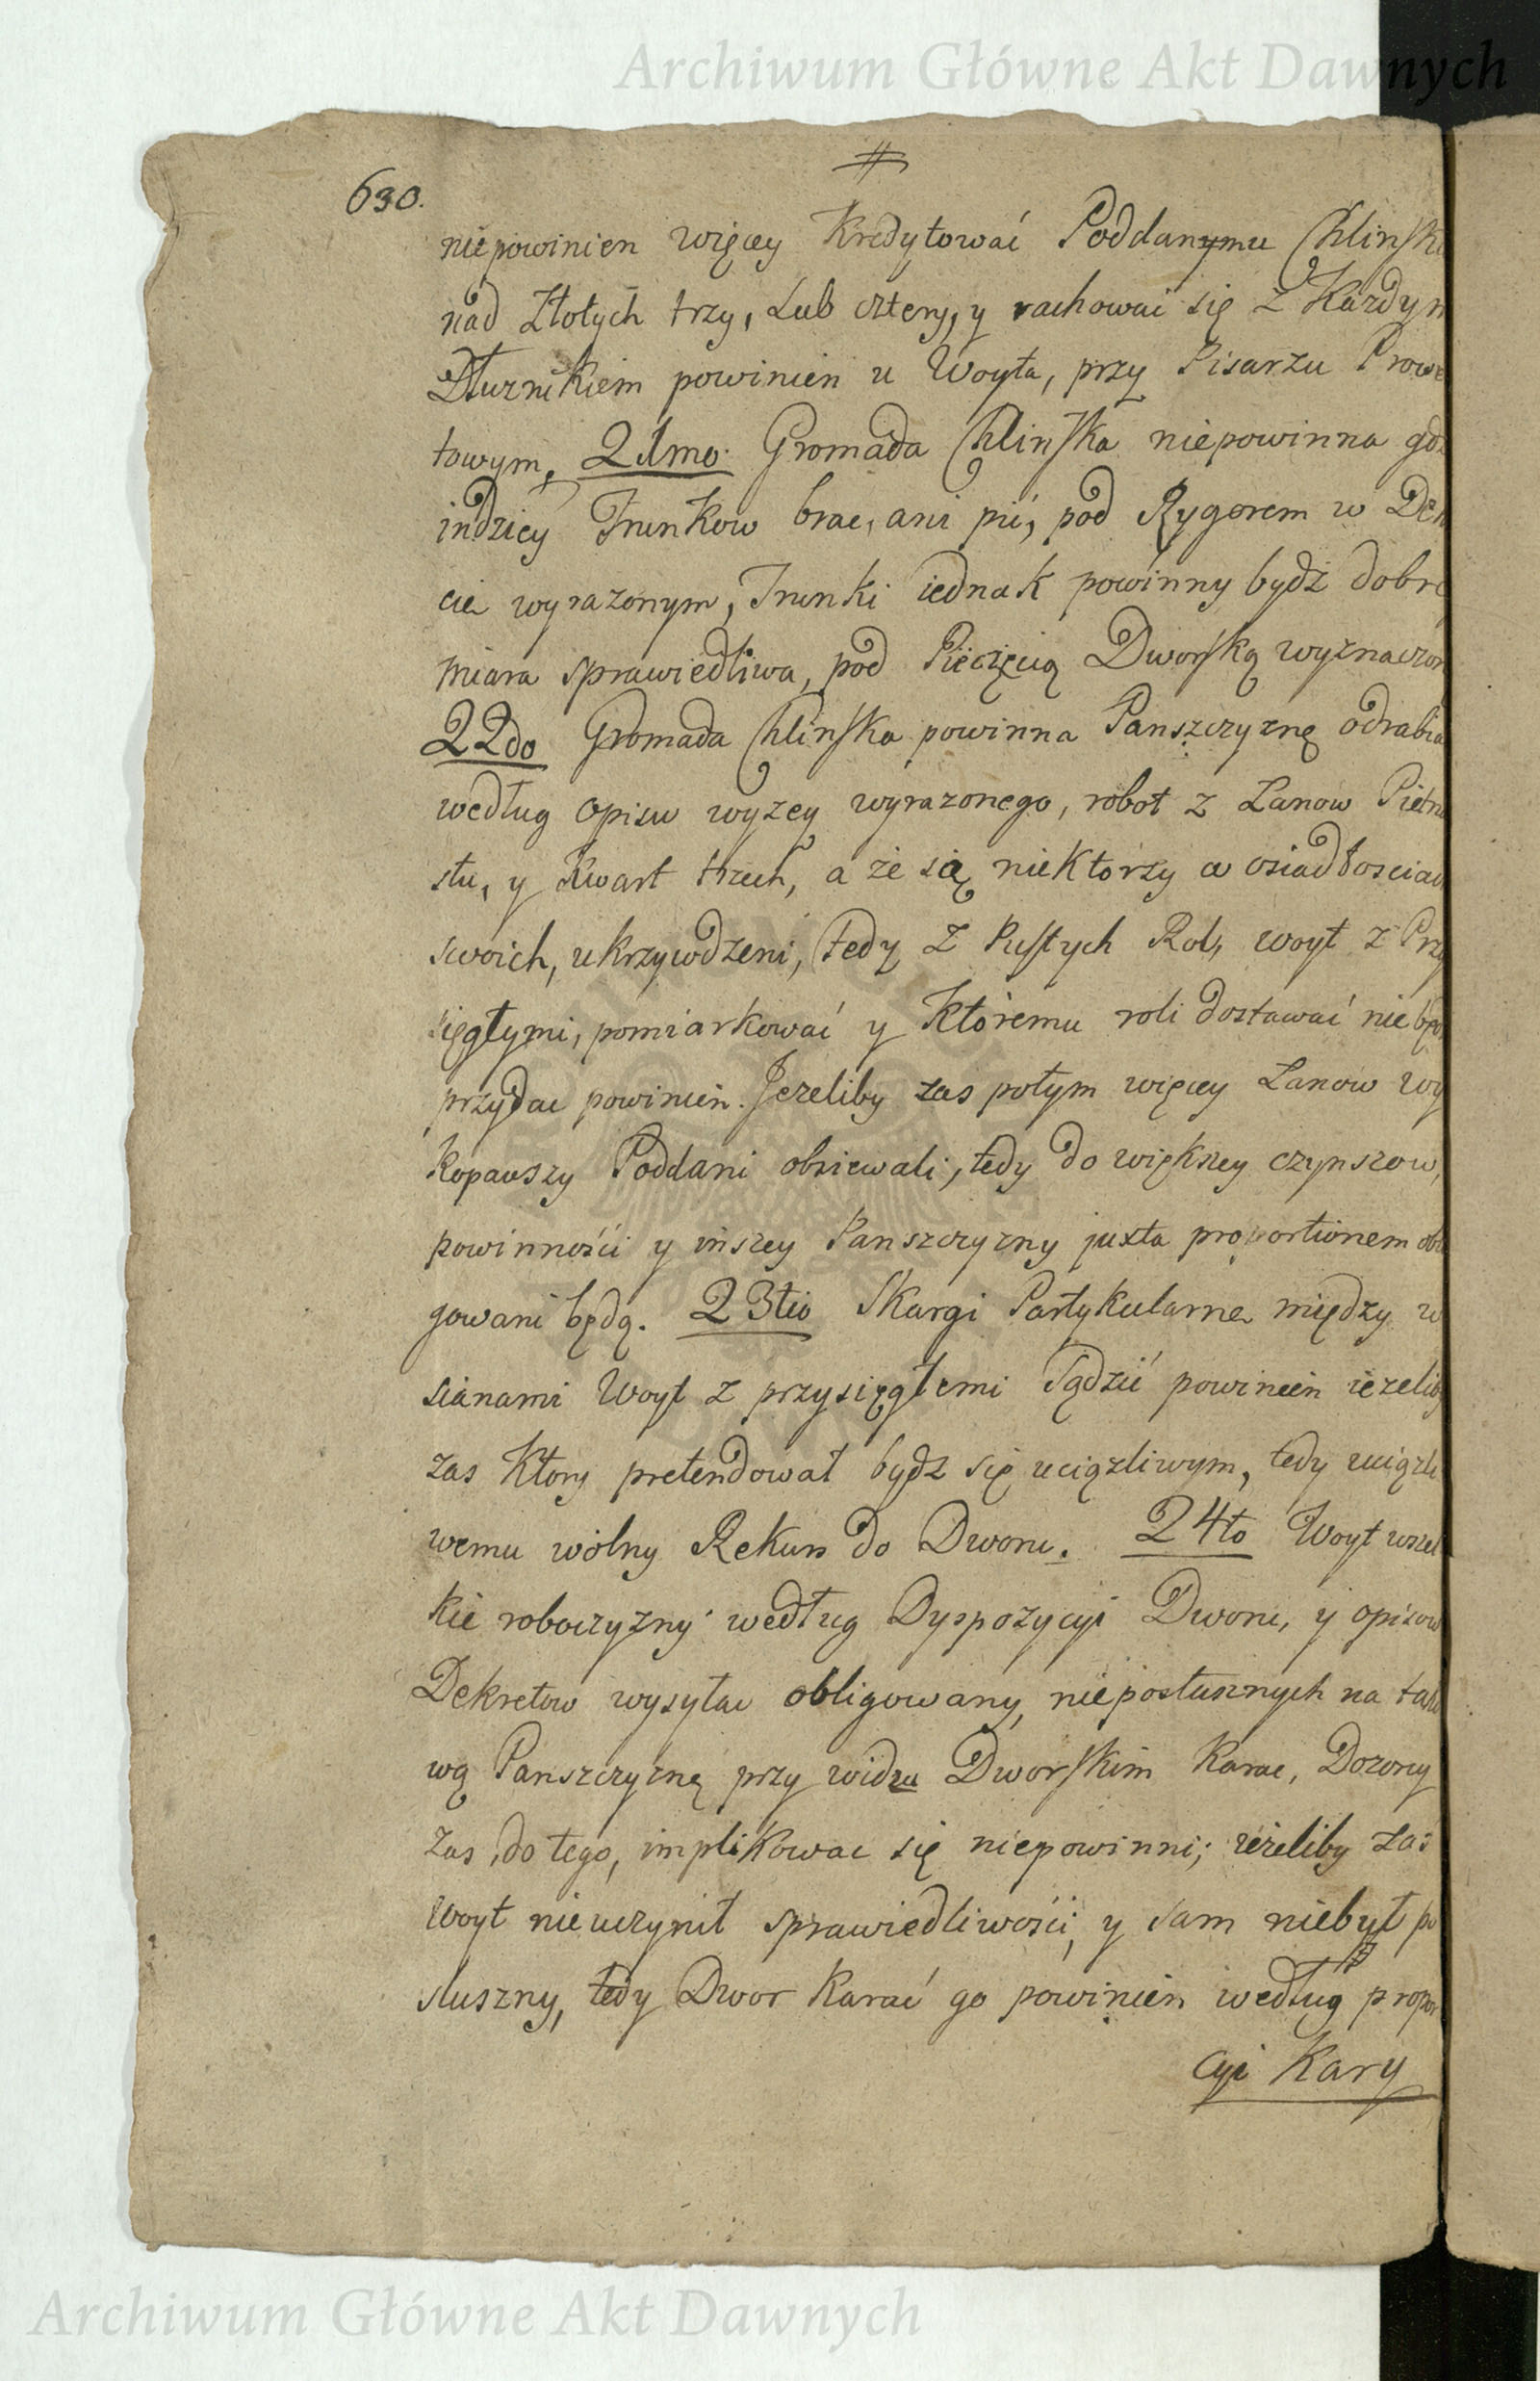 Archiwum Główne Akt Dawnych
630.
niepowinien więcey Kredytować Poddanymu Chlinsk
nad Złotych trzy, Lub cztery, y rachować się z Kazdym
Dłuznikiem powinien u Woyta, przy Pisarzu Prowe
towym, 21mo. Gromada Chlinska niepowinna gdz
indziey Trunkow brac, ani pić, pod Rygorem w Dek
cie wyrazonym, Trunki iednak powinny bydź dobre
miara sprawiedliwa, pod Pieczęcią Dworską wyznaczon
22do Gromada Chlinska powinna Panszczyznę odrabia
według opisu wyzey wyrazonego, robot z Lanow Piętna
stu, y Kwart trzech, a że są niektorzy w osiadłosciach
swoich, ukrzywdzeni, tedy z Pustych Rol, woyt z Przy
sięgłymi, pomiarkować y Któremu roli dostawać niebę
przydac powinien. Jezeliby zas potym więcey Lanow wy
kopawszy Poddani obsiewali, tedy do większey czynszow,
powinności y inszey Panszczyzny juxta proportionem obl
gowani będą. 23tio Skargi Partykularne między w
scianami Woyt z przysięgłemi Sądzić powinien iezeliby
zas Ktory pretendował bydz się uciązliwym, tedy uciązli
wemu wolny Rekurs do Dworu. 24to Woyt wszel
kie roboczyzny według Dyspozycyi Dworu, y opisow
Dekretow wysyłac obligowany, nieposłusznych na tako
wą Panszczyznę przy widzu Dworskim Karac, Dozorcy
zas do tego, implikowac się niepowinni; ieżeliby zas
Woyt nieuczynił sprawiedliwości, y sam niebył po
słuszny, tedy Dwor Karać go powinien według propor
cyi Kary
Archiwum Główne Akt Dawnych